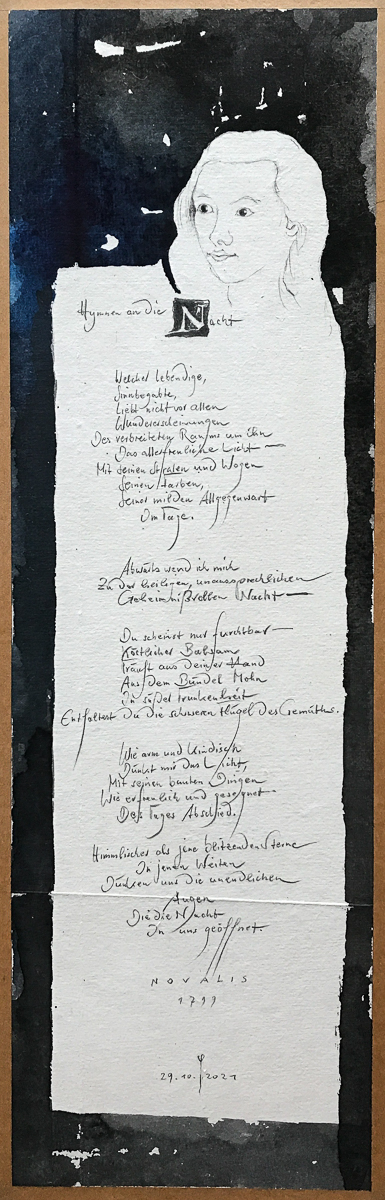 Hymnen an die Nacht
Welcher Lebendige,
Sinnbegabte,
Liebt nicht vor allen
Wundererscheinungen
Des verbreiteten Raums um ihn
Das allerfreuliche Licht —
Mit seinen Stralen und Wogen
Seinen Farben,
Seiner milden Allgegenwart
Im Tage.
Abwärts wend ich mich
Zu der heiligen, unaussprechlichen
Geheimnißvollen Nacht —
Du scheinst nur furchtbar —
Köstlicher Balsam
Träuft aus deiner Hand
Aus dem Bündel Mohn
In süßer Trunkenheit
Entfaltest Du die schweren Flügel des Gemüths.
Wie arm und kindisch
Dünkt mir das Licht,
Mit seinen bunten Dingen
Wie erfreulich und gesegnet
Des Tages Abschied.
Himmlischer als jene blitzenden Sterne
In jenen Weiten
Dünken uns die unendlichen
Augen
Die die Nacht
In uns geöffnet.
NOVALIS
1799
29.10.2021